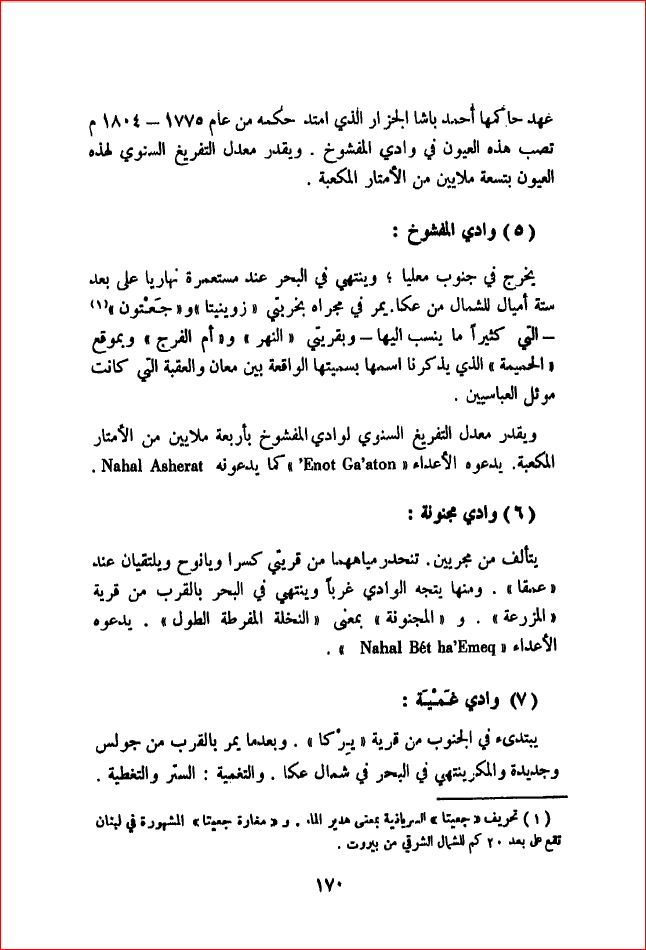 عهد حاكمها أحمد باشا الجزار الذي امتد حكمه من عام ١٧٧٥ – ١٨٠٤ م
تصب هذه العيون في وادي المفشوخ . ويقدر معدل التفريغ السنوي لهذه
العيون بتسعة ملايين من الأمتار المكعبة .
(٥) وادي المفشوخ :
يخرج في جنوب معليا ؛ وينتهي في البحر عند مستعمرة نهاريا على بعد
ستة أميال للشمال من عكا. يمر في مجراه بخربتي « زوينيتا » و « جَعْتون »(١)
– التي كثيراً ما ينسب اليها – وبقريتي « النهر » و« أم الفرج » وبموقع
« الحميمة » الذي يذكرنا اسمها بسميتها الواقعة بين معان والعقبة التي كانت
موئل العباسيين .
ويقدر معدل التفريغ السنوي لوادي المفشوخ بأربعة ملايين من الأمتار
المكعبة. يدعوه الأعداء « Enot Ga'aton' » كما يدعونه Nahal Asherat .
(٦) وادي مجنونة :
يتألف من مجريين . تنحدر مياههما من قريتي كسرا ويانوح ويلتقيان عند
« عمقا » . ومنها يتجه الوادي غرباً وينتهي في البحر بالقرب من قرية
« المزرعة » . و « المجنونة » بمعنى « النخلة المفرطة الطول » . يدعوه
الأعداء « Nahal Bét ha'Emeq » .
(٧) وادي غَمْيَة :
يبتدىء في الجنوب من قرية « يِرْكا » . وبعدما يمر بالقرب من جولس
وجديدة والمكر ينتهي في البحر في شمال عكا . والتغمية : الستر والتغطية .
(١) تحريف « جعيتا » السريانية بمعنى هدير الماء . و « مغارة جعيتا » المشهورة في لبنان
تقع على بعد ٢٠ كم للشمال الشرقي من بيروت .
١٧٠